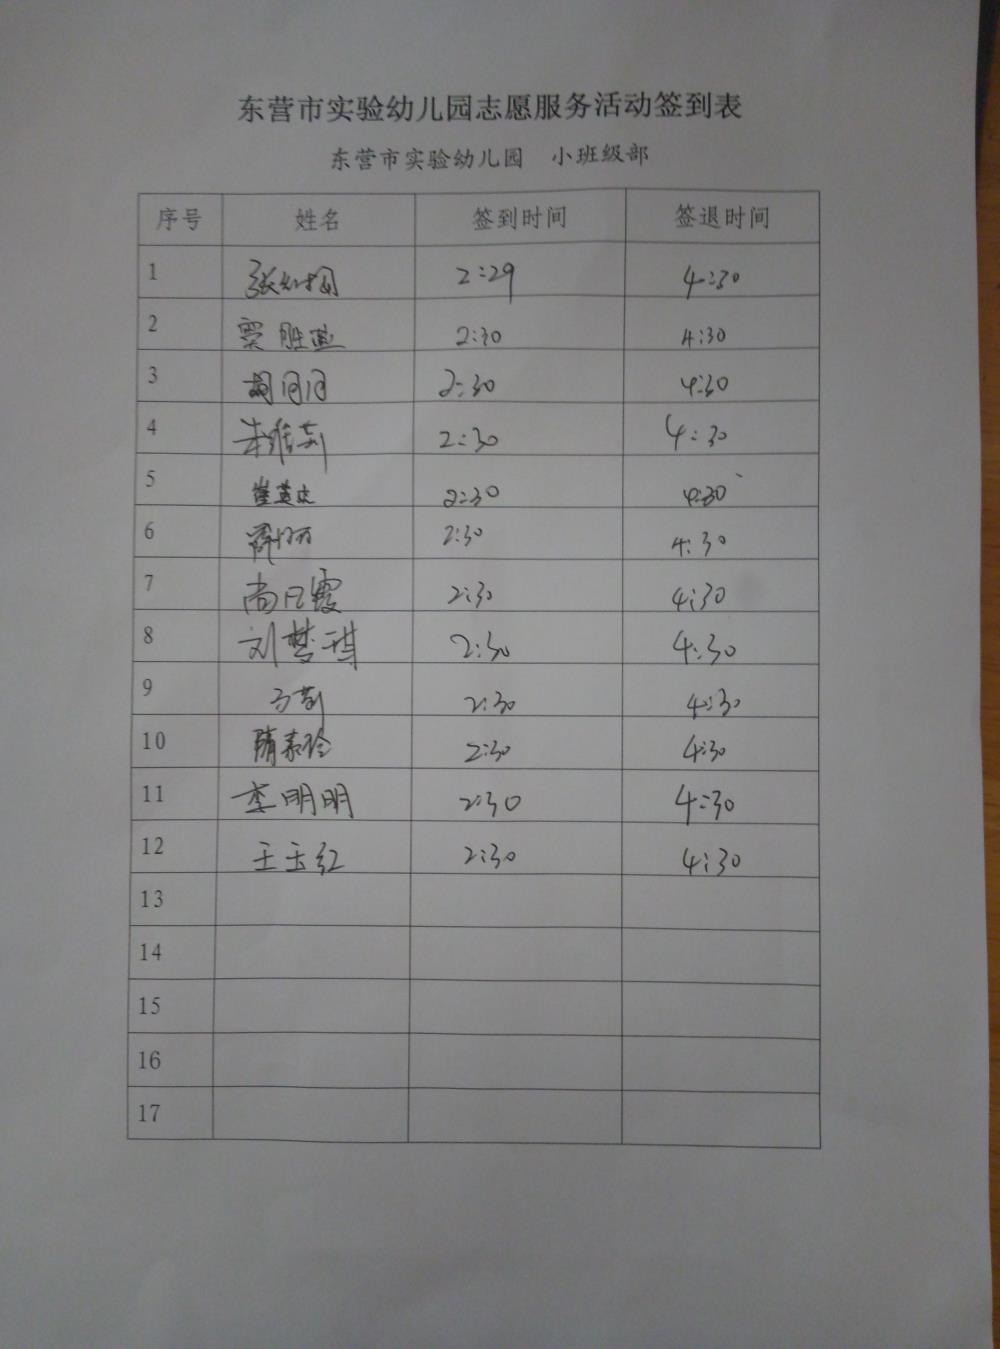 东营市实验幼儿园志愿服务活动签到表
东营市实验幼儿园 小班级部
序号 姓名 签到时间 签退时间
1 2:29 4:30
2 窦胜燕 2:30 4:30
3 胡月月 2:30 4:30
4 朱维莉 2:30 4:30
5 崔英杰 2:30 4:30
6 薛丽丽 2:30 4:30
7 尚凤霞 2:30 4:30
8 刘梦琪 2:30 4:30
9 2:30 4:30
10 隋素玲 2:30 4:30
11 李明明 2:30 4:30
12 王玉红 2:30 4:30
13
14
15
16
17